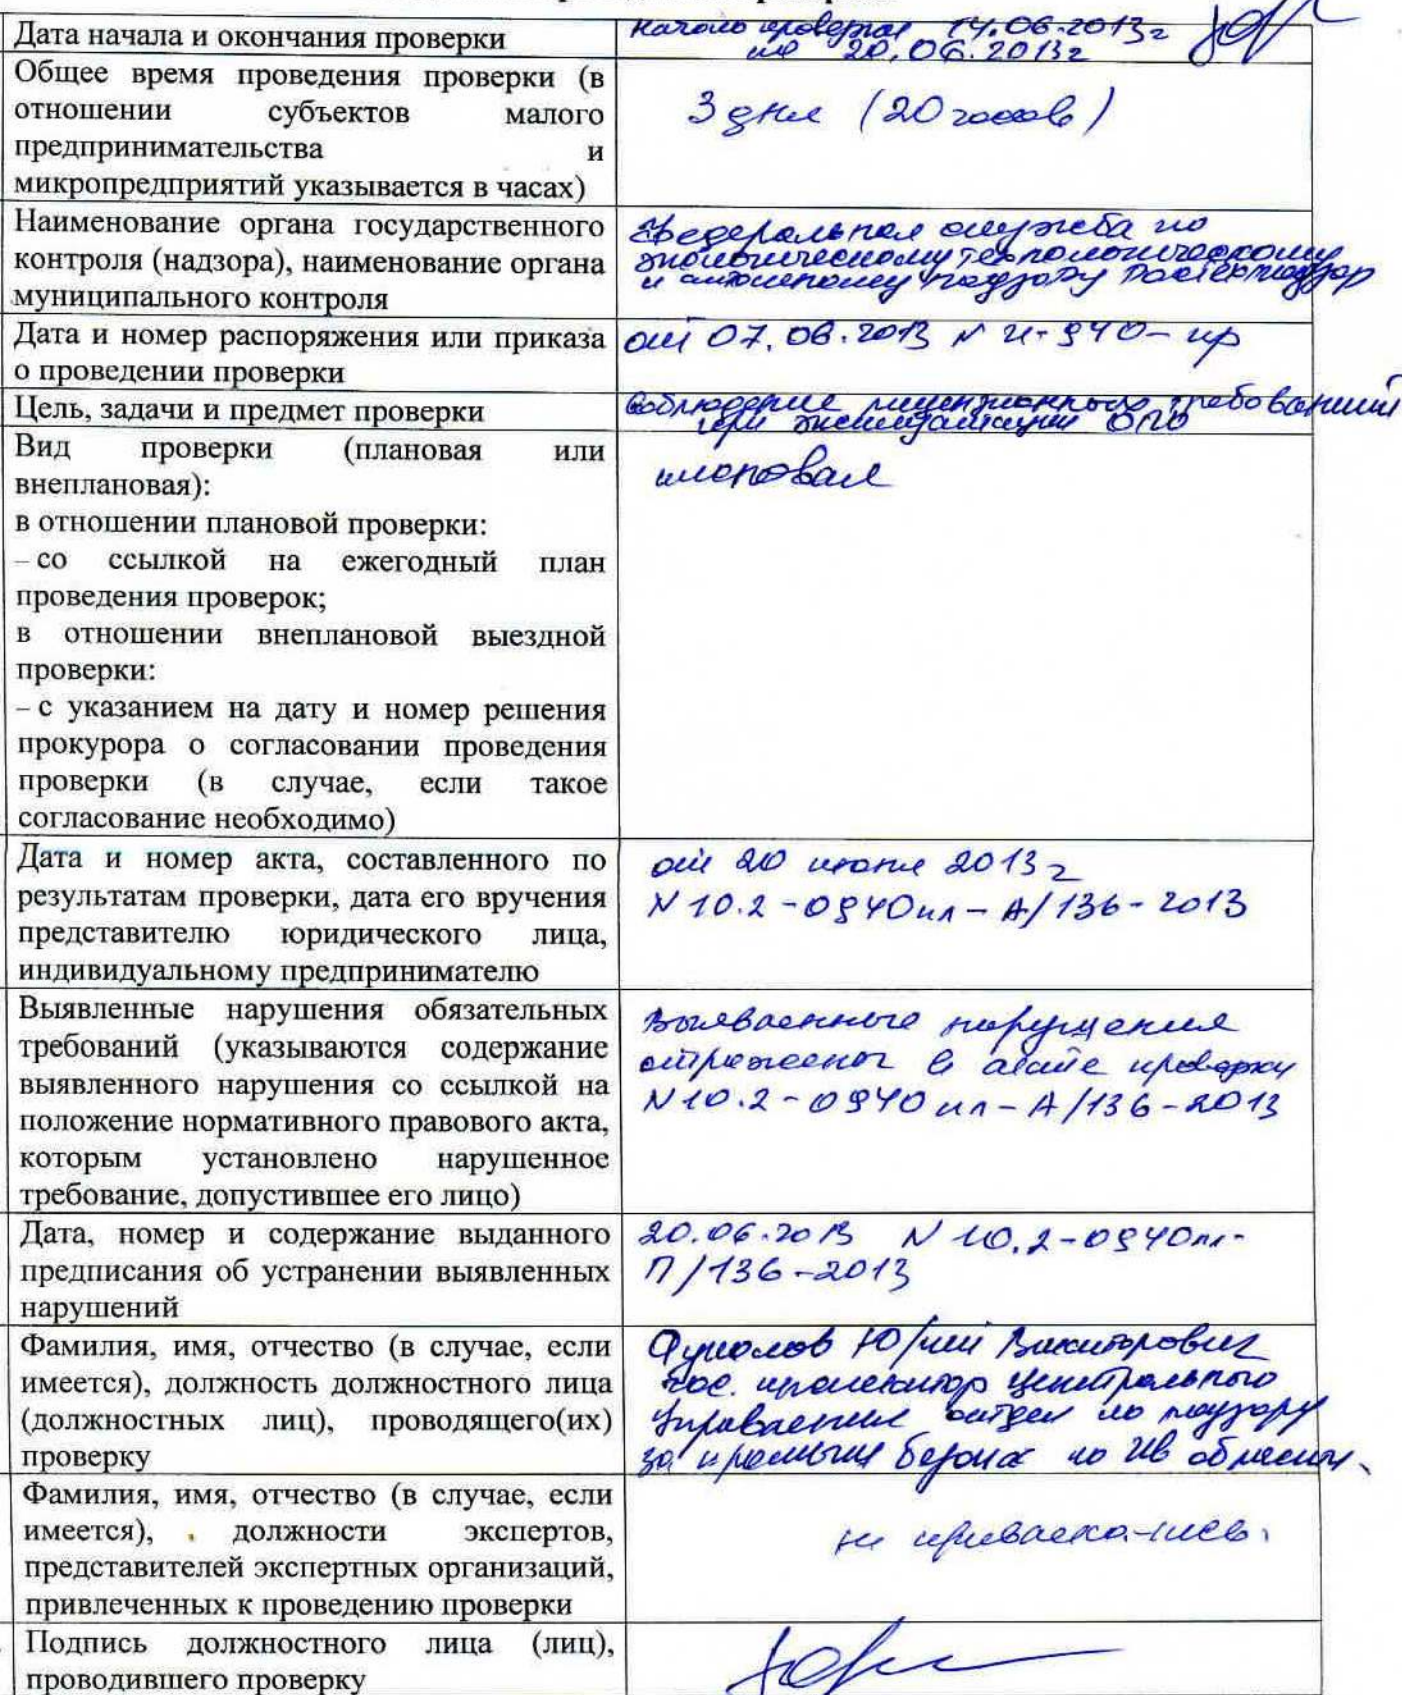 Дата начала и окончания проверки
начало проверки 14.06.2013г
по 20.06.2013г
Общее время проведения проверки (в
отношении субъектов малого
предпринимательства и
микропредприятий указывается в часах)
3 дня (20 часов)
Наименование органа государственного
контроля (надзора), наименование органа
муниципального контроля
Федеральная служба по
экологическому технологическому
и атомному надзору Ростехнадзор
Дата и номер распоряжения или приказа
о проведении проверки
от 07.06.2013 N И-940-пр
Цель, задачи и предмет проверки
соблюдение лицензионного требований
при эксплуатации ОПО
Вид проверки (плановая или
внеплановая):
в отношении плановой проверки:
– со ссылкой на ежегодный план
проведения проверок;
в отношении внеплановой выездной
проверки:
– с указанием на дату и номер решения
прокурора о согласовании проведения
проверки (в случае, если такое
согласование необходимо)
плановая
Дата и номер акта, составленного по
результатам проверки, дата его вручения
представителю юридического лица,
индивидуальному предпринимателю
от 20 июня 2013 г
N 10.2-0940пл-А/136-2013
Выявленные нарушения обязательных
требований (указываются содержание
выявленного нарушения со ссылкой на
положение нормативного правового акта,
которым установлено нарушенное
требование, допустившее его лицо)
Выявленные нарушения
отражены в акте проверки
N10.2-0940пл-А/136-2013
Дата, номер и содержание выданного
предписания об устранении выявленных
нарушений
20.06.2013 N 10.2-0940пл-
П/136-2013
Фамилия, имя, отчество (в случае, если
имеется), должность должностного лица
(должностных лиц), проводящего(их)
проверку
Юрий Викторович
гос. инспектор Центрального
Управления отдел по надзору
за промышл безопас по Ив области.
Фамилия, имя, отчество (в случае, если
имеется), должности экспертов,
представителей экспертных организаций,
привлеченных к проведению проверки
не привлекались.
Подпись должностного лица (лиц),
проводившего проверку